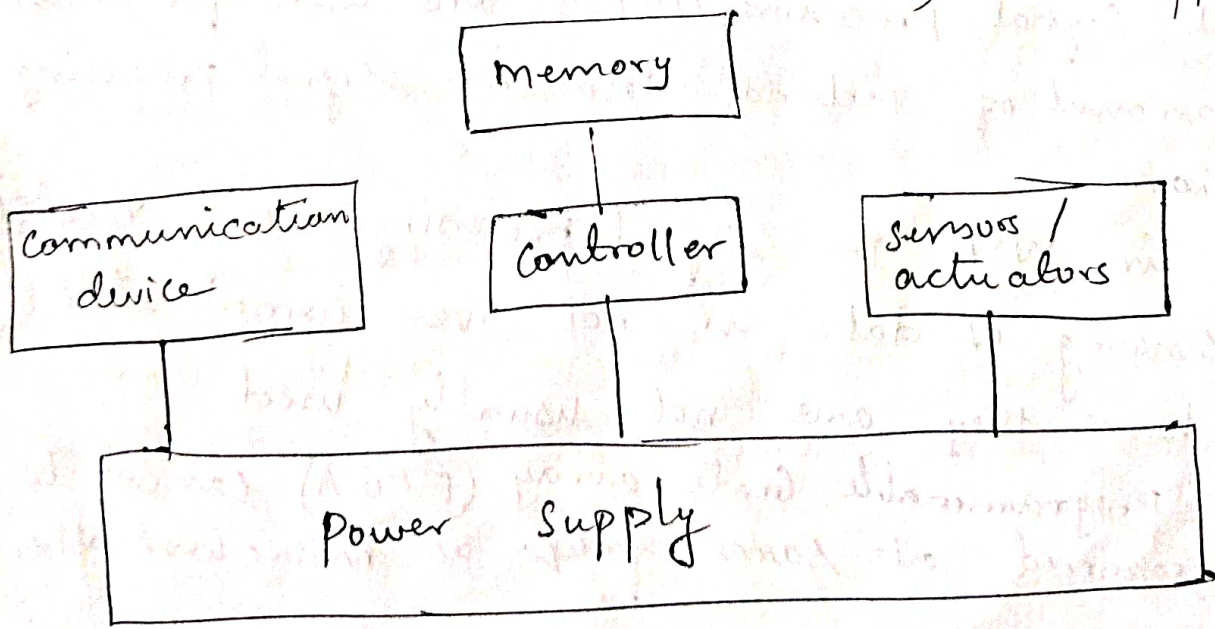 memory
communication
device
controller
sensors /
actuators
Power Supply